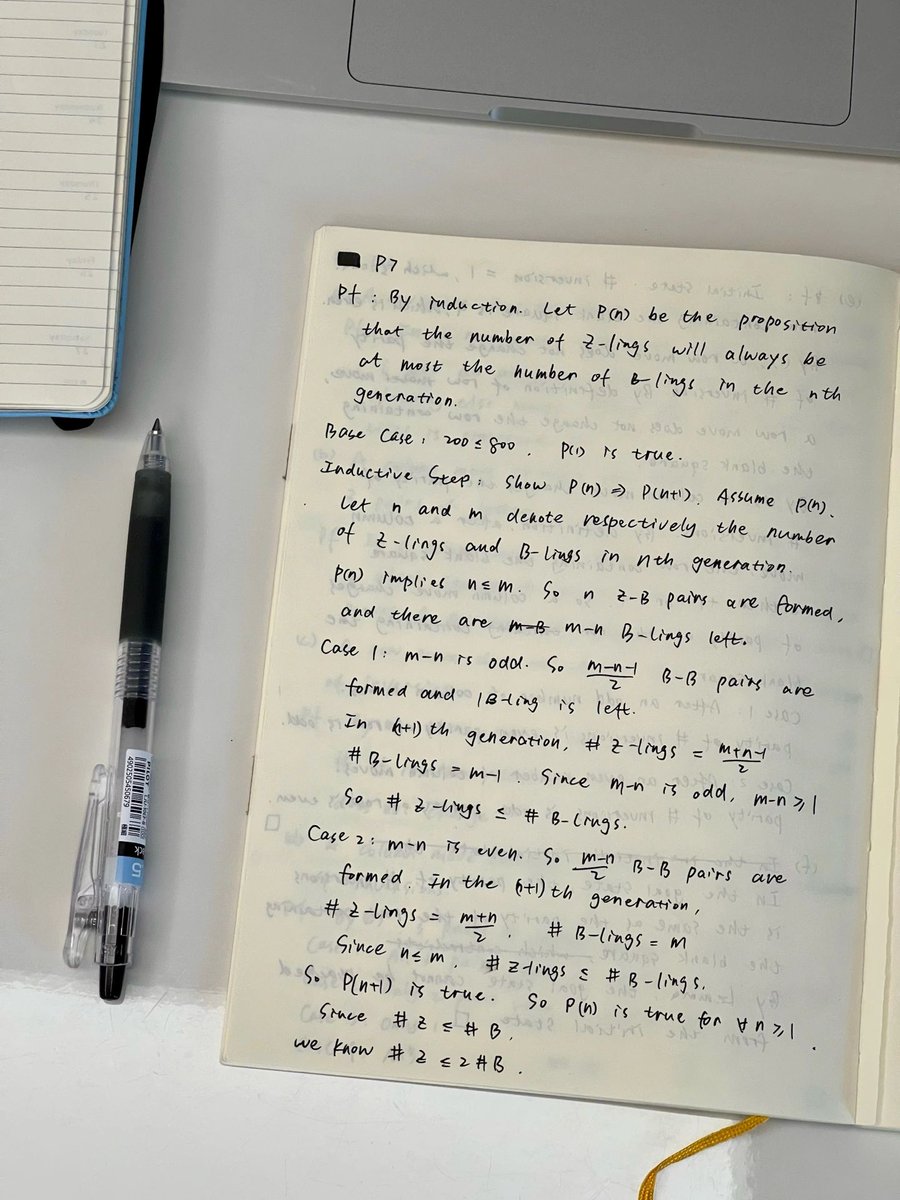 P7
Pf : By induction. Let P(n) be the proposition
that the number of Z-lings will always be
at most the number of B-lings in the nth
generation.
Base Case : 200 ≤ 800 . P(1) is true.
Inductive Step : Show P(n) ⇒ P(n+1). Assume P(n).
Let n and m denote respectively the number
of Z-lings and B-lings in nth generation.
P(n) implies n ≤ m. So n Z-B pairs are formed,
and there are m-B m-n B-lings left.
Case 1 : m-n is odd. So (m-n-1)/2 B-B pairs are
formed and 1 B-ling is left.
In (n+1)th generation, # Z-lings = (m+n-1)/2
# B-lings = m-1 . Since m-n is odd, m-n ≥ 1
So # Z-lings ≤ # B-lings.
Case 2 : m-n is even. So (m-n)/2 B-B pairs are
formed. In the (n+1)th generation,
# Z-lings = (m+n)/2 . # B-lings = m
Since n ≤ m, # Z-lings ≤ # B-lings.
So P(n+1) is true. So P(n) is true for ∀ n ≥ 1 .
Since # Z ≤ # B ,
we know # Z ≤ 2 # B .
PILOT
4902505450679